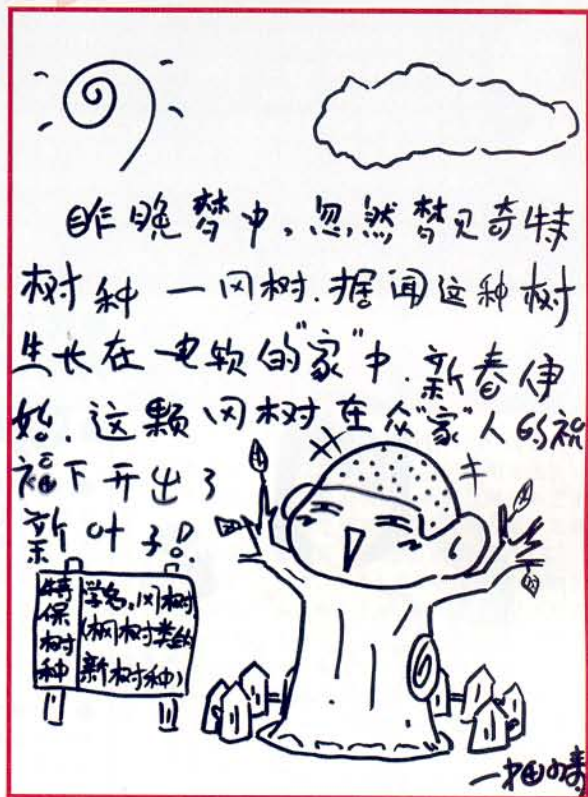 昨晚梦中,忽然梦见奇特
树种一冈树.据闻这种树
生长在电软的"家"中.新春伊
始.这颗冈树在众"家"人的祝
福下开出了
新叶子!
特保树种
学名:冈树
(枫树类的
新树种)